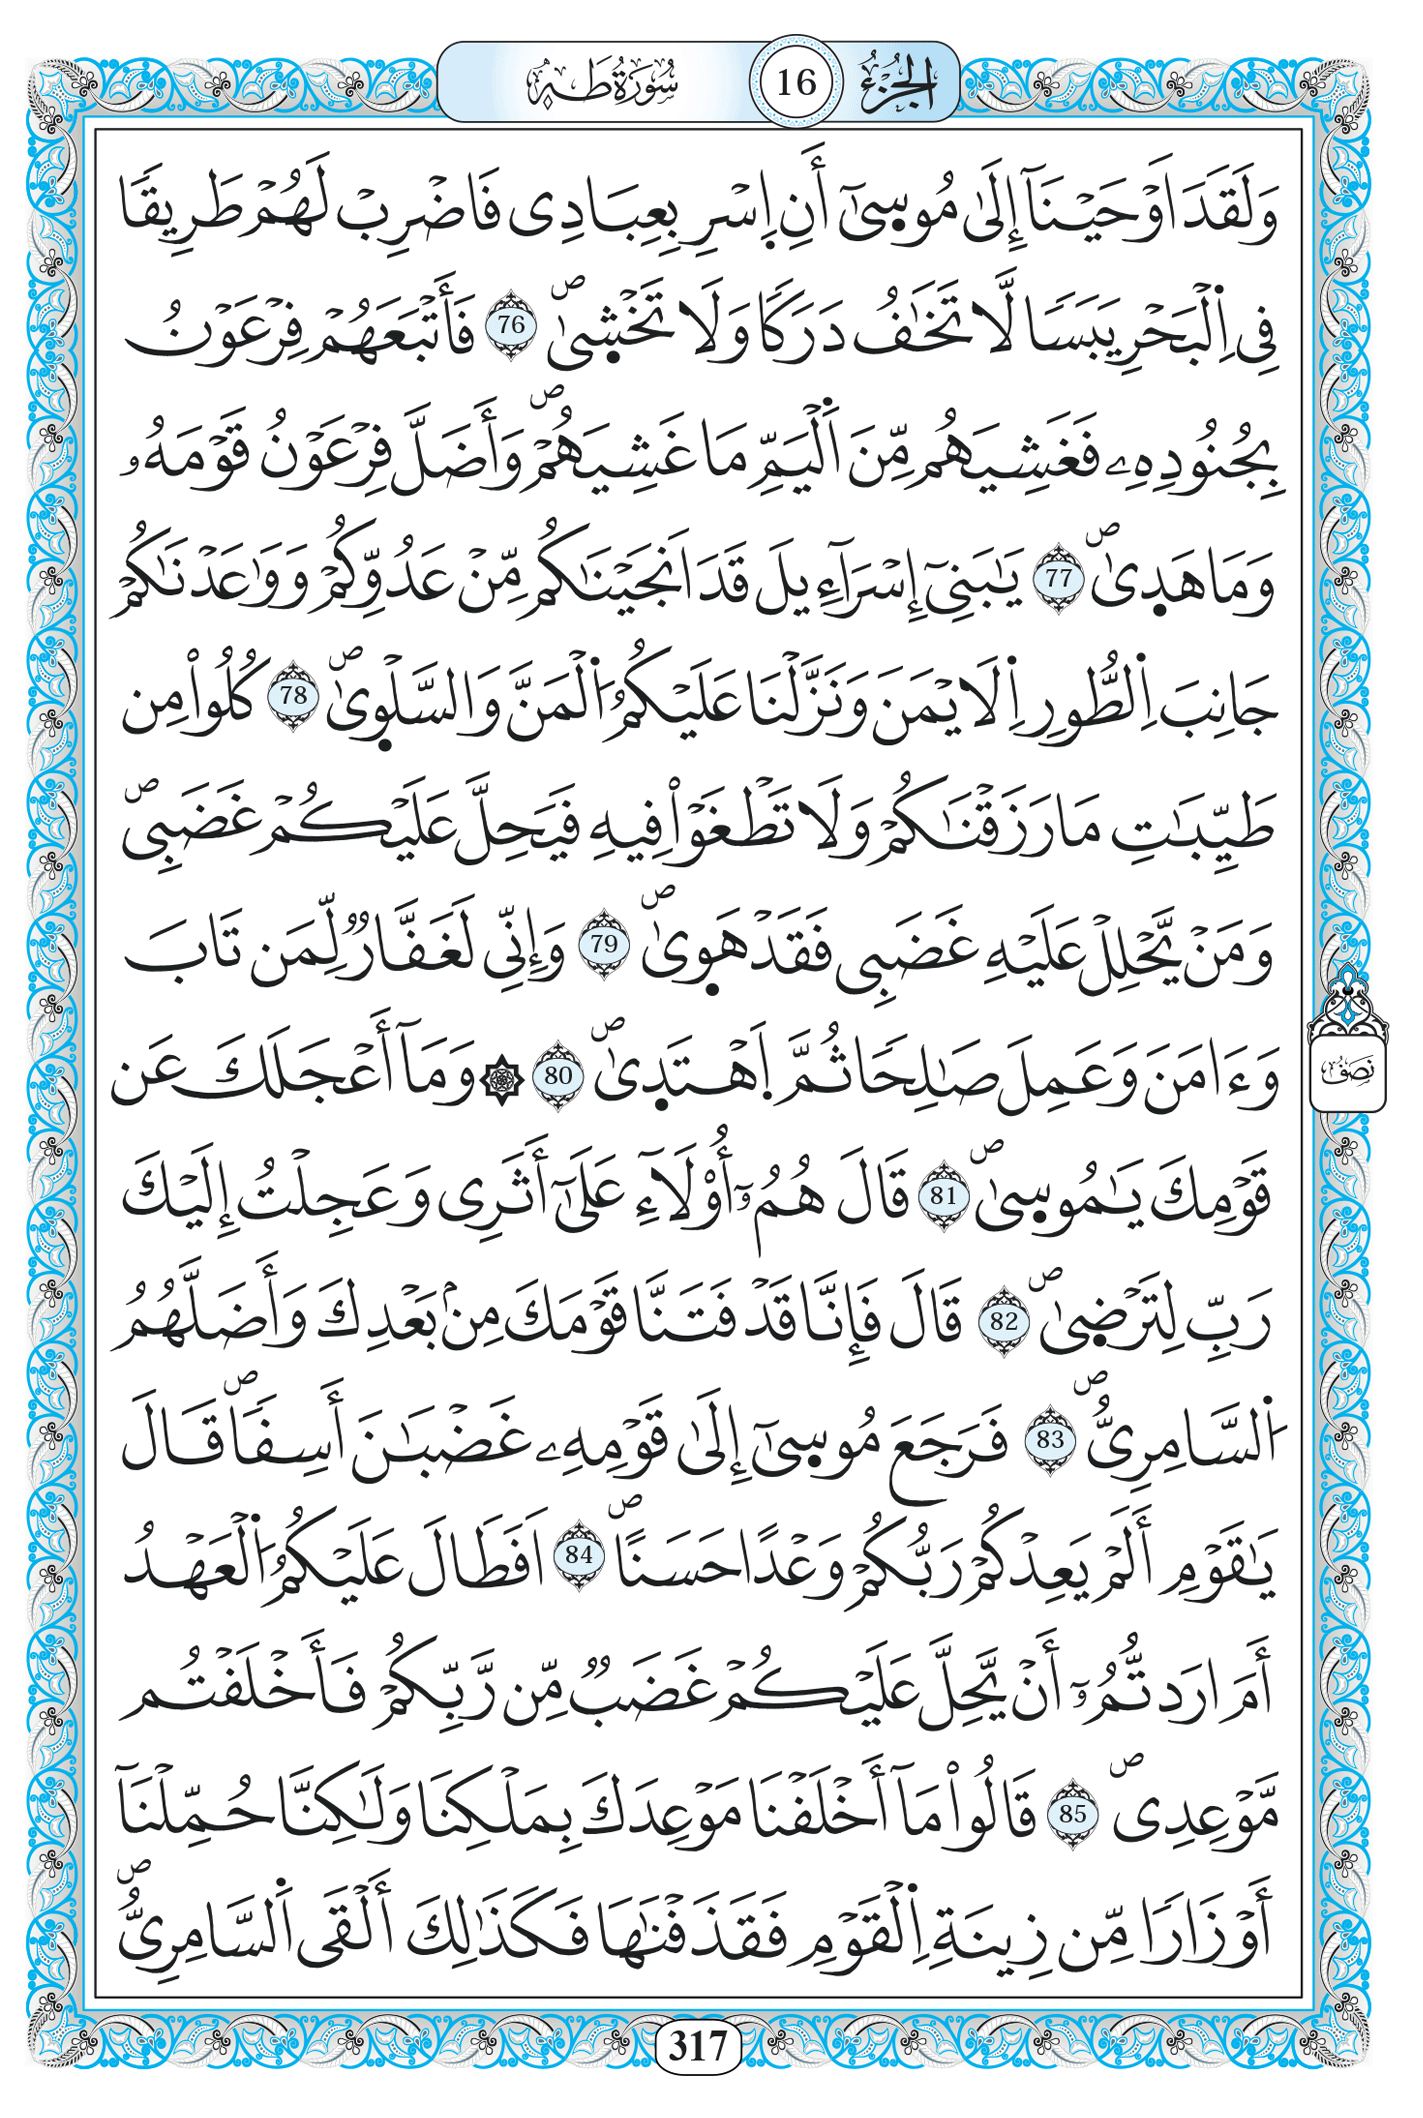 الجزء 16 سورة طه
وَلَقَدَ اَوْحَيْنَآ إِلَىٰ مُوسىٰٓ أَنِ اِ۪سْرِ بِعِبَادِى فَاضْرِبْ لَهُمْ طَرِيقًا
فِى اِ۬لْبَحْرِ يَبَسًا لَّا تَخَٰفُ دَرَكًا وَلَا تَخْشىٰۖ 76 فَأَتْبَعَهُمْ فِرْعَوْنُ
بِجُنُودِهِۦ فَغَشِيَهُم مِّنَ اَ۬لْيَمِّ مَا غَشِيَهُمْۖ وَأَضَلَّ فِرْعَوْنُ قَوْمَهُۥ
وَمَا هَدىٰۖ 77 يَٰبَنِىٓ إِسْرَآءِيلَ قَدَ اَنجَيْنَٰكُم مِّنْ عَدُوِّكُمْ وَوَٰعَدْنَٰكُمْ
جَانِبَ اَ۬لطُّورِ اِ۬لَايْمَنَ وَنَزَّلْنَا عَلَيْكُمُ اُ۬لْمَنَّ وَالسَّلْوىٰۖ 78 كُلُواْ مِن
طَيِّبَٰتِ مَا رَزَقْنَٰكُمْ وَلَا تَطْغَوْاْ فِيهِ فَيَحِلَّ عَلَيْكُمْ غَضَبِىۖ
وَمَنْ يَّحْلِلْ عَلَيْهِ غَضَبِى فَقَدْ هَوىٰۖ 79 وَإِنِّى لَغَفَّارٌ لِّمَن تَابَ
وَءَامَنَ وَعَمِلَ صَٰلِحًا ثُمَّ اَ۪هْتَدىٰۖ 80 ۞ وَمَآ أَعْجَلَكَ عَن
قَوْمِكَ يَٰمُوسىٰۖ 81 قَالَ هُمُۥٓ أُوْلَآءِ عَلَىٰٓ أَثَرِى وَعَجِلْتُ إِلَيْكَ
رَبِّ لِتَرْضىٰۖ 82 قَالَ فَإِنَّا قَدْ فَتَنَّا قَوْمَكَ مِنۢ بَعْدِكَ وَأَضَلَّهُمُ
اُ۬لسَّامِرِىُّۖ 83 فَرَجَعَ مُوسىٰٓ إِلَىٰ قَوْمِهِۦ غَضْبَٰنَ أَسِفًاۖ قَالَ
يَٰقَوْمِ أَلَمْ يَعِدْكُمْ رَبُّكُمْ وَعْدًا حَسَنًاۖ 84 اَفَطَالَ عَلَيْكُمُ اُ۬لْعَهْدُ
أَمَ اَرَدتُّمُۥٓ أَنْ يَّحِلَّ عَلَيْكُمْ غَضَبٌ مِّن رَّبِّكُمْ فَأَخْلَفْتُم
مَّوْعِدِىۖ 85 قَالُواْ مَآ أَخْلَفْنَا مَوْعِدَكَ بِمَلْكِنَا وَلَٰكِنَّا حُمِّلْنَآ
أَوْزَارًا مِّن زِينَةِ اِ۬لْقَوْمِ فَقَذَفْنَٰهَا فَكَذَٰلِكَ أَلْقَى اَ۬لسَّامِرِىُّۖ
نصف
317